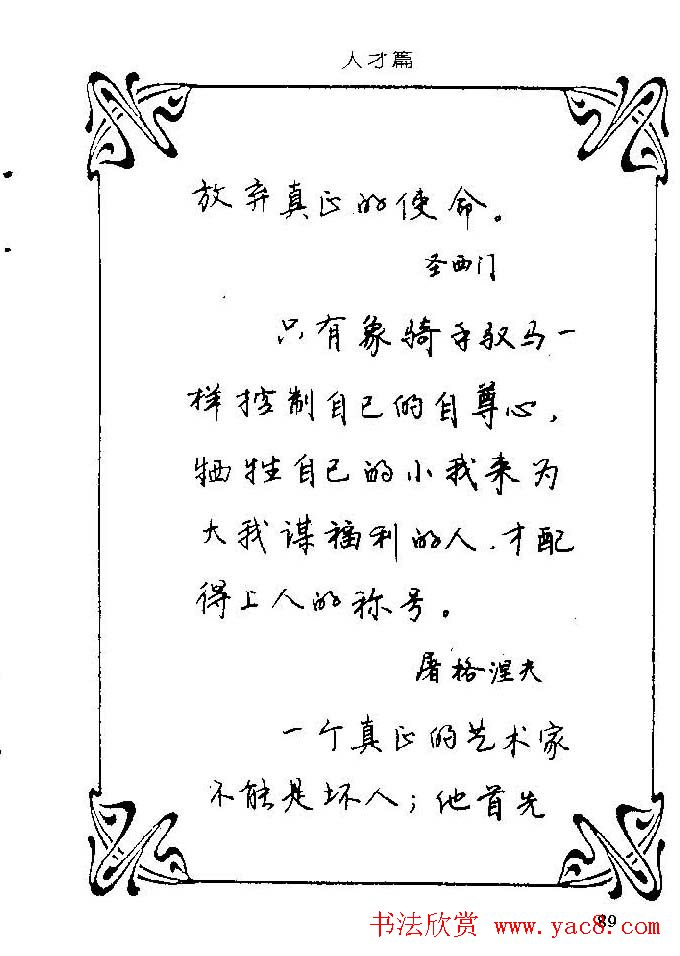 人才篇
放弃真正的使命。
圣西门
只有象骑手驭马一
样控制自己的自尊心，
牺牲自己的小我来为
大我谋福利的人，才配
得上人的称号。
屠格涅夫
一个真正的艺术家
不能是坏人；他首先
89
书法欣赏 www.yac8.com